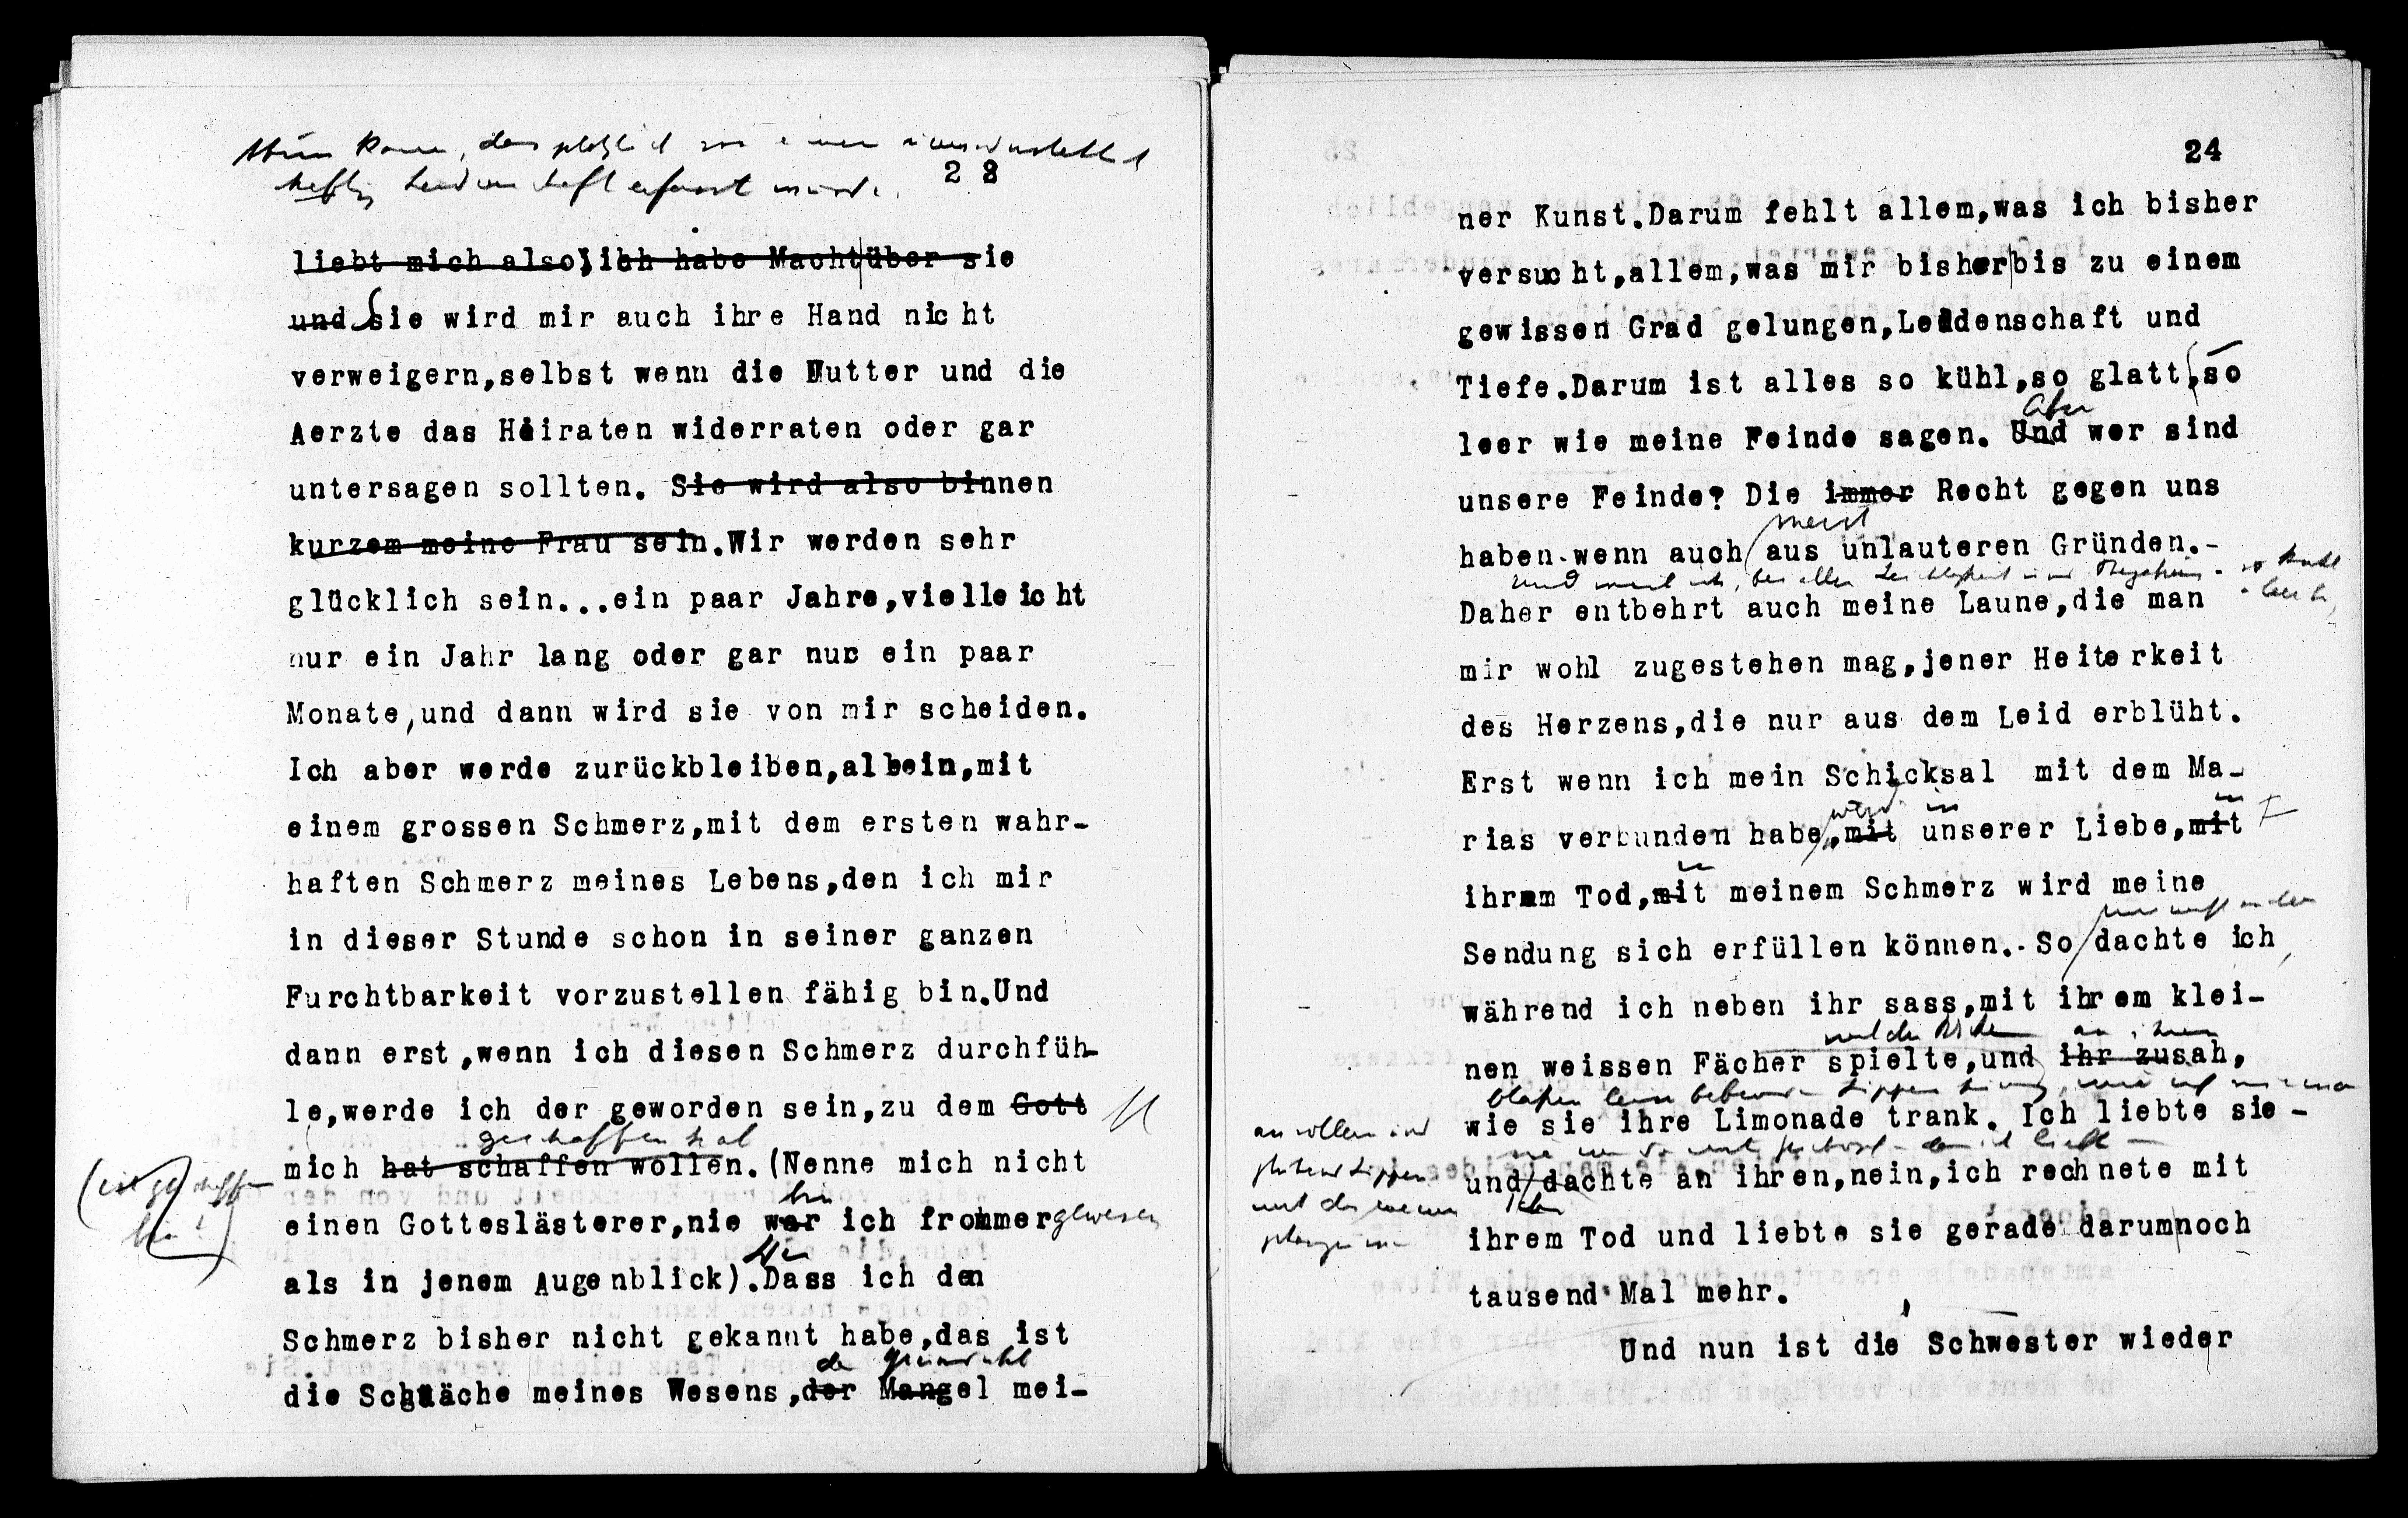 23
liebt mich also, ich habe Macht über sie
und Sie wird mir auch ihre Hand nicht
verweigern,selbst wenn die Mutter und die
Aerzte das Heiraten widerraten oder gar
untersagen sollten. Sie wird also binnen
kurzem meine Frau sein.Wir werden sehr
glücklich sein...ein paar Jahre,vielleicht
nur ein Jahr lang oder gar nur ein paar
Monate,und dann wird sie von mir scheiden.
Ich aber werde zurückbleiben,allein,mit
einem grossen Schmerz,mit dem ersten wahr-
haften Schmerz meines Lebens,den ich mir
in dieser Stunde schon in seiner ganzen
Furchtbarkeit vorzustellen fähig bin.Und
dann erst,wenn ich diesen Schmerz durchfüh-
le,werde ich der geworden sein,zu dem Gott
geschaffen hat
mich hat schaffen wollen.(Nenne mich nicht
bin
einen Gotteslästerer,nie war ich frommer gewesen
als in jenem Augenblick).Dass ich den
Schmerz bisher nicht gekannt habe,das ist
die Schwäche meines Wesens,der Mangel mei-
24
ner Kunst.Darum fehlt allem,was ich bisher
versucht,allem,was mir bisher bis zu einem
gewissen Grad gelungen,Leidenschaft und
Tiefe.Darum ist alles so kühl,so glatt,so
Aber
leer wie meine Feinde sagen. Und wer sind
unsere Feinde? Die immer Recht gegen uns
meist
haben-wenn auch aus unlauteren Gründen.-
Daher entbehrt auch meine Laune,die man
mir wohl zugestehen mag,jener Heiterkeit
des Herzens,die nur aus dem Leid erblüht.
Erst wenn ich mein Schicksal mit dem Ma-
wird in in
rias verbunden habe,mit unserer Liebe,mit
in
ihrem Tod,mit meinem Schmerz wird meine
Sendung sich erfüllen können.-So dachte ich,
während ich neben ihr sass,mit ihrem klei-
nen weissen Fächer spielte,und ihr zusah,
wie sie ihre Limonade trank. Ich liebte sie -
und dachte an ihren,nein,ich rechnete mit
ihrem Tod und liebte sie gerade darum noch
tausend Mal mehr.
Und nun ist die Schwester wieder